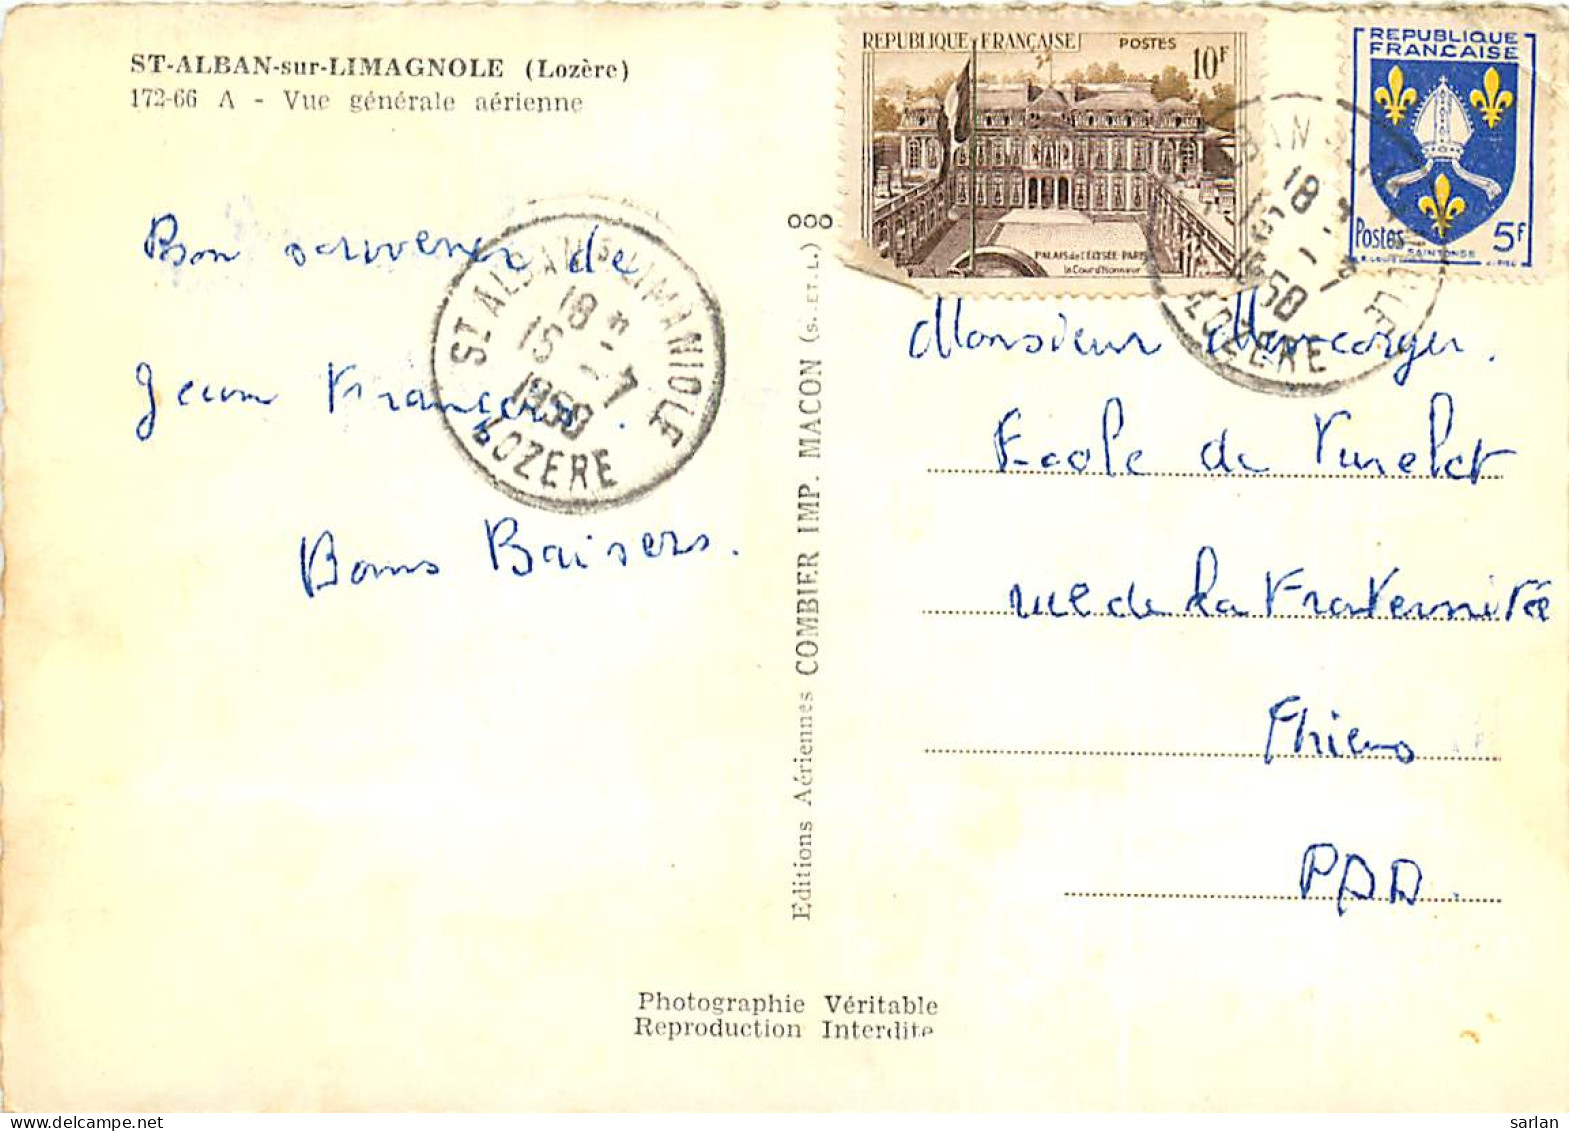 ST-ALBAN-sur-LIMAGNOLE (Lozère)
172-66 A - Vue générale aérienne
Bon souvenir de
Jean François.
Bons Baisers.
ST ALBAN S LIMANIOLE
18 H
15 - 7
1958
LOZERE
Editions Aériennes COMBIER IMP. MACON (S. ET. L.) OOO
REPUBLIQUE FRANÇAISE
POSTES
10F
PALAIS de l'ELYSÉE PARIS
la Cour d'Honneur
REPUBLIQUE
FRANÇAISE
Postes
5F
SAINTONGE
18
1958
LOZERE
Monsieur
Ecole de
rue de la Fraternité
Thiers
PDD.
Photographie Véritable
Reproduction Interdite
sarlan